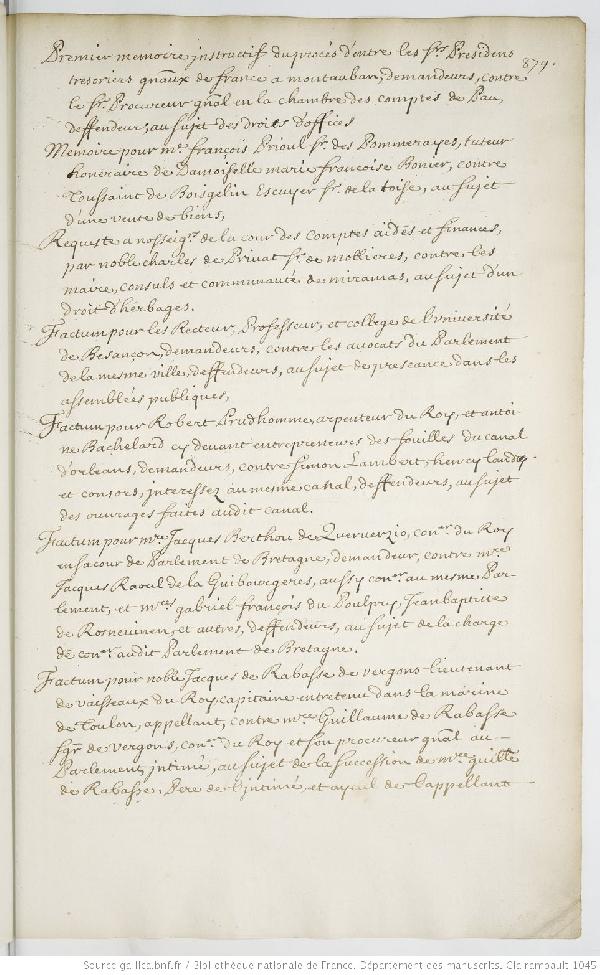 879.
Premier memoire instructif du procés d'entre les srs. Presidens
tresoriers gñaux de france a montauban, demandeurs, contre
le sr. Procureur gñal en la chambre des comptes de Pau,
deffendeur, au sujet des droits d'offices
Memoire pour mr. françois Prioul sr. des Pommerayes, tuteur
honoraire de Damoiselle marie francoise Bonier, contre
Toussaint de Boisgelin Escuyer sr. de la toise, au sujet
d'une vente de biens,
Requeste a nosseigrs. de la cour des comptes aides et finances,
par noble charles de Privat sr. de mollieres, contre les
maire, consuls et communauté de miramas, au sujet d'un
droit d'herbages.
Factum pour les Recteur, Professeur, et college de l'université
de Besançon, demandeurs, contre les avocats du Parlement
de la mesme ville, deffendeurs, au sujet de preseance dans les
assemblées publiques,
Factum pour Robert Prudhomme, arpenteur du Roy, et antoi-
ne Bachelard cy devant entrepreneurs des fouilles du canal
d'orleans, demandeurs, contre simon Lambert, henry
et consors, interessez au mesme canal, deffendeurs, au sujet
des ouvrages faites audit canal.
Factum pour mre. Jacques Berthou de Querverzio, coner. du Roy
en sa cour de Parlement de Bretagne, demandeur, contre mre
Jacques Raoul de la Guibourgeres, aussy coner. au mesme Par-
lement, et mres gabriel françois du Poulpry, Jean baptiste
de Rosnevinen, et autres, deffendeurs, au sujet de la charge
de coner. audit Parlement de Bretagne.
Factum pour noble Jacques de Rabasse de vergons lieutenant
de vaisseaux du Roy, capitaine entretenu dans la marine
de Toulon, appellant, contre mre Guillaume de Rabasse
sgr. de vergons, coner. du Roy et son procureur gñal au
Parlement, intimé, au sujet de la succession de mre guille
de Rabasse, Pere de l'intimé, et ayeul de l'appellant
Source gallica.bnf.fr / Bibliothèque nationale de France. Département des manuscrits. Clairambault 1045